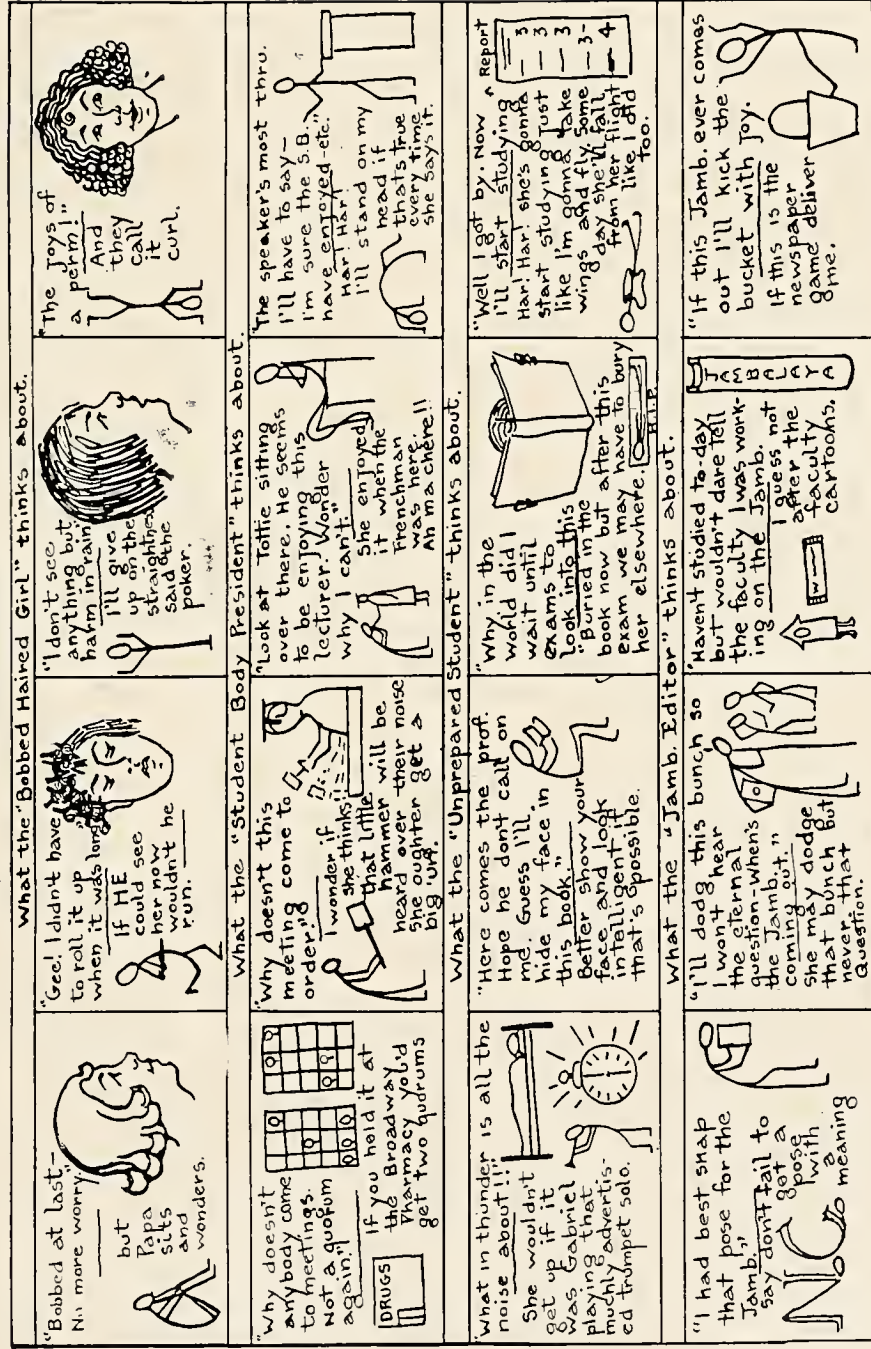 What the "Bobbed Haired Girl" thinks about.
"Bobbed at last—
No more worry."
but
Papa
sits
and
wonders.
"Gee! I didn't have
to roll it up
when it was long"
If HE
could see
her now
wouldn't he
run.
"I don't see
anything but
harm in rain"
I'll give
up on the
straightness
said the
poker.
"The joys of
a perm!"
And
they
call
it
curl.
What the "Student Body President" thinks about.
"Why doesn't
anybody come
to meetings.
Not a quorum
again."
If you hold it at
the Broadway
Pharmacy you'd
get two quorums
DRUGS
"Why doesn't this
meeting come to
order."
I wonder if
she thinks
that little
hammer will be
heard over their noise
She oughter get a
big 'un.
"Look at Tottie sitting
over there. He seems
to be enjoying this
lecturer. Wonder
why I can't."
She enjoyed
it when the
Frenchman
was here.
Ah ma chere!!
"The speaker's most thru.
I'll have to say—
I'm sure the S.B.
have enjoyed-etc."
Har! Har!
I'll stand on my
head if
thats true
every time
she says it.
What the "Unprepared Student" thinks about.
"What in thunder is all the
noise about!!"
She wouldn't
get up if it
was Gabriel
playing that
muchly advertis-
ed trumpet solo.
"Here comes the prof.
Hope he don't call on
me. Guess I'll
hide my face in
this book."
Better show your
face and look
intelligent if
that's possible.
"Why in the
world did I
wait until
exams to
look into this
"Buried in the
book now but after this
exam we may have to bury
her elsewhere.
R.I.P.
"Well I got by. Now
I'll start studying"
Har! Har! she's gonna
start studying Just
like I'm gonna take
wings and fly. Some
day she'll fall
from her flight
like I did
too.
Report
3
3
3
3-
4
What the "Jamb. Editor" thinks about.
"I had best snap
that pose for the
Jamb."
Say don't fail to
get a
pose
with
a
meaning
"I'll dodg this bunch so
I won't hear
the eternal
question-when's
the Jamb.
coming out."
She may dodge
that bunch but
never that
Question.
"Haven't studied to-day
but wouldn't dare tell
the faculty I was work-
ing on the Jamb.
I guess not
after the
faculty
cartoons.
W
JAMBALAYA
"If this Jamb. ever comes
out I'll kick the
bucket with joy.
If this is the
newspaper
game deliver
me.